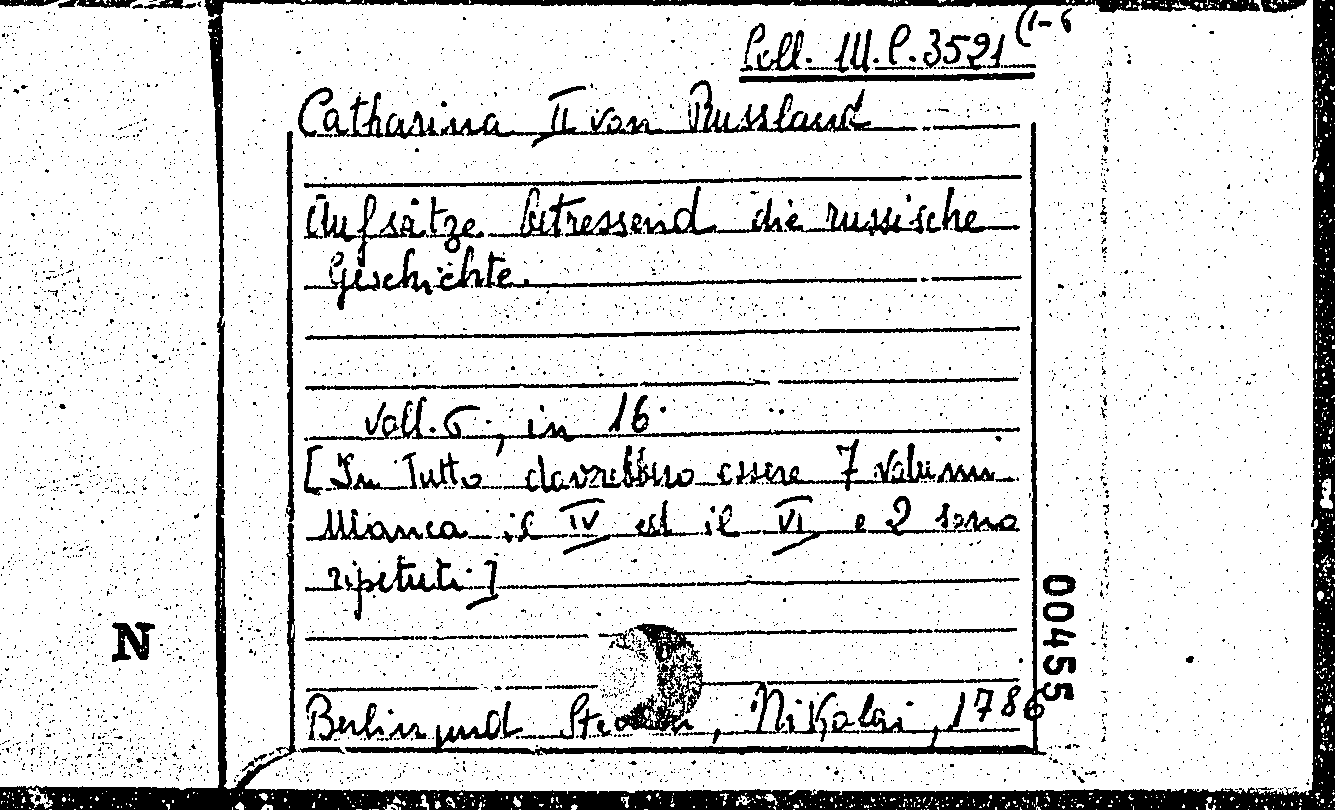 Coll. III. C. 3521 (1-6
Catharina II von Russland
Aufsätze betressend die russische
Geschichte.
voll. 6., in 16.
[In Tutto dovrebbero essere 7 volumi
Manca il IV ed il VI e 2 sono
ripetuti]
Berlin und , Nikolai, 1786
00455
N